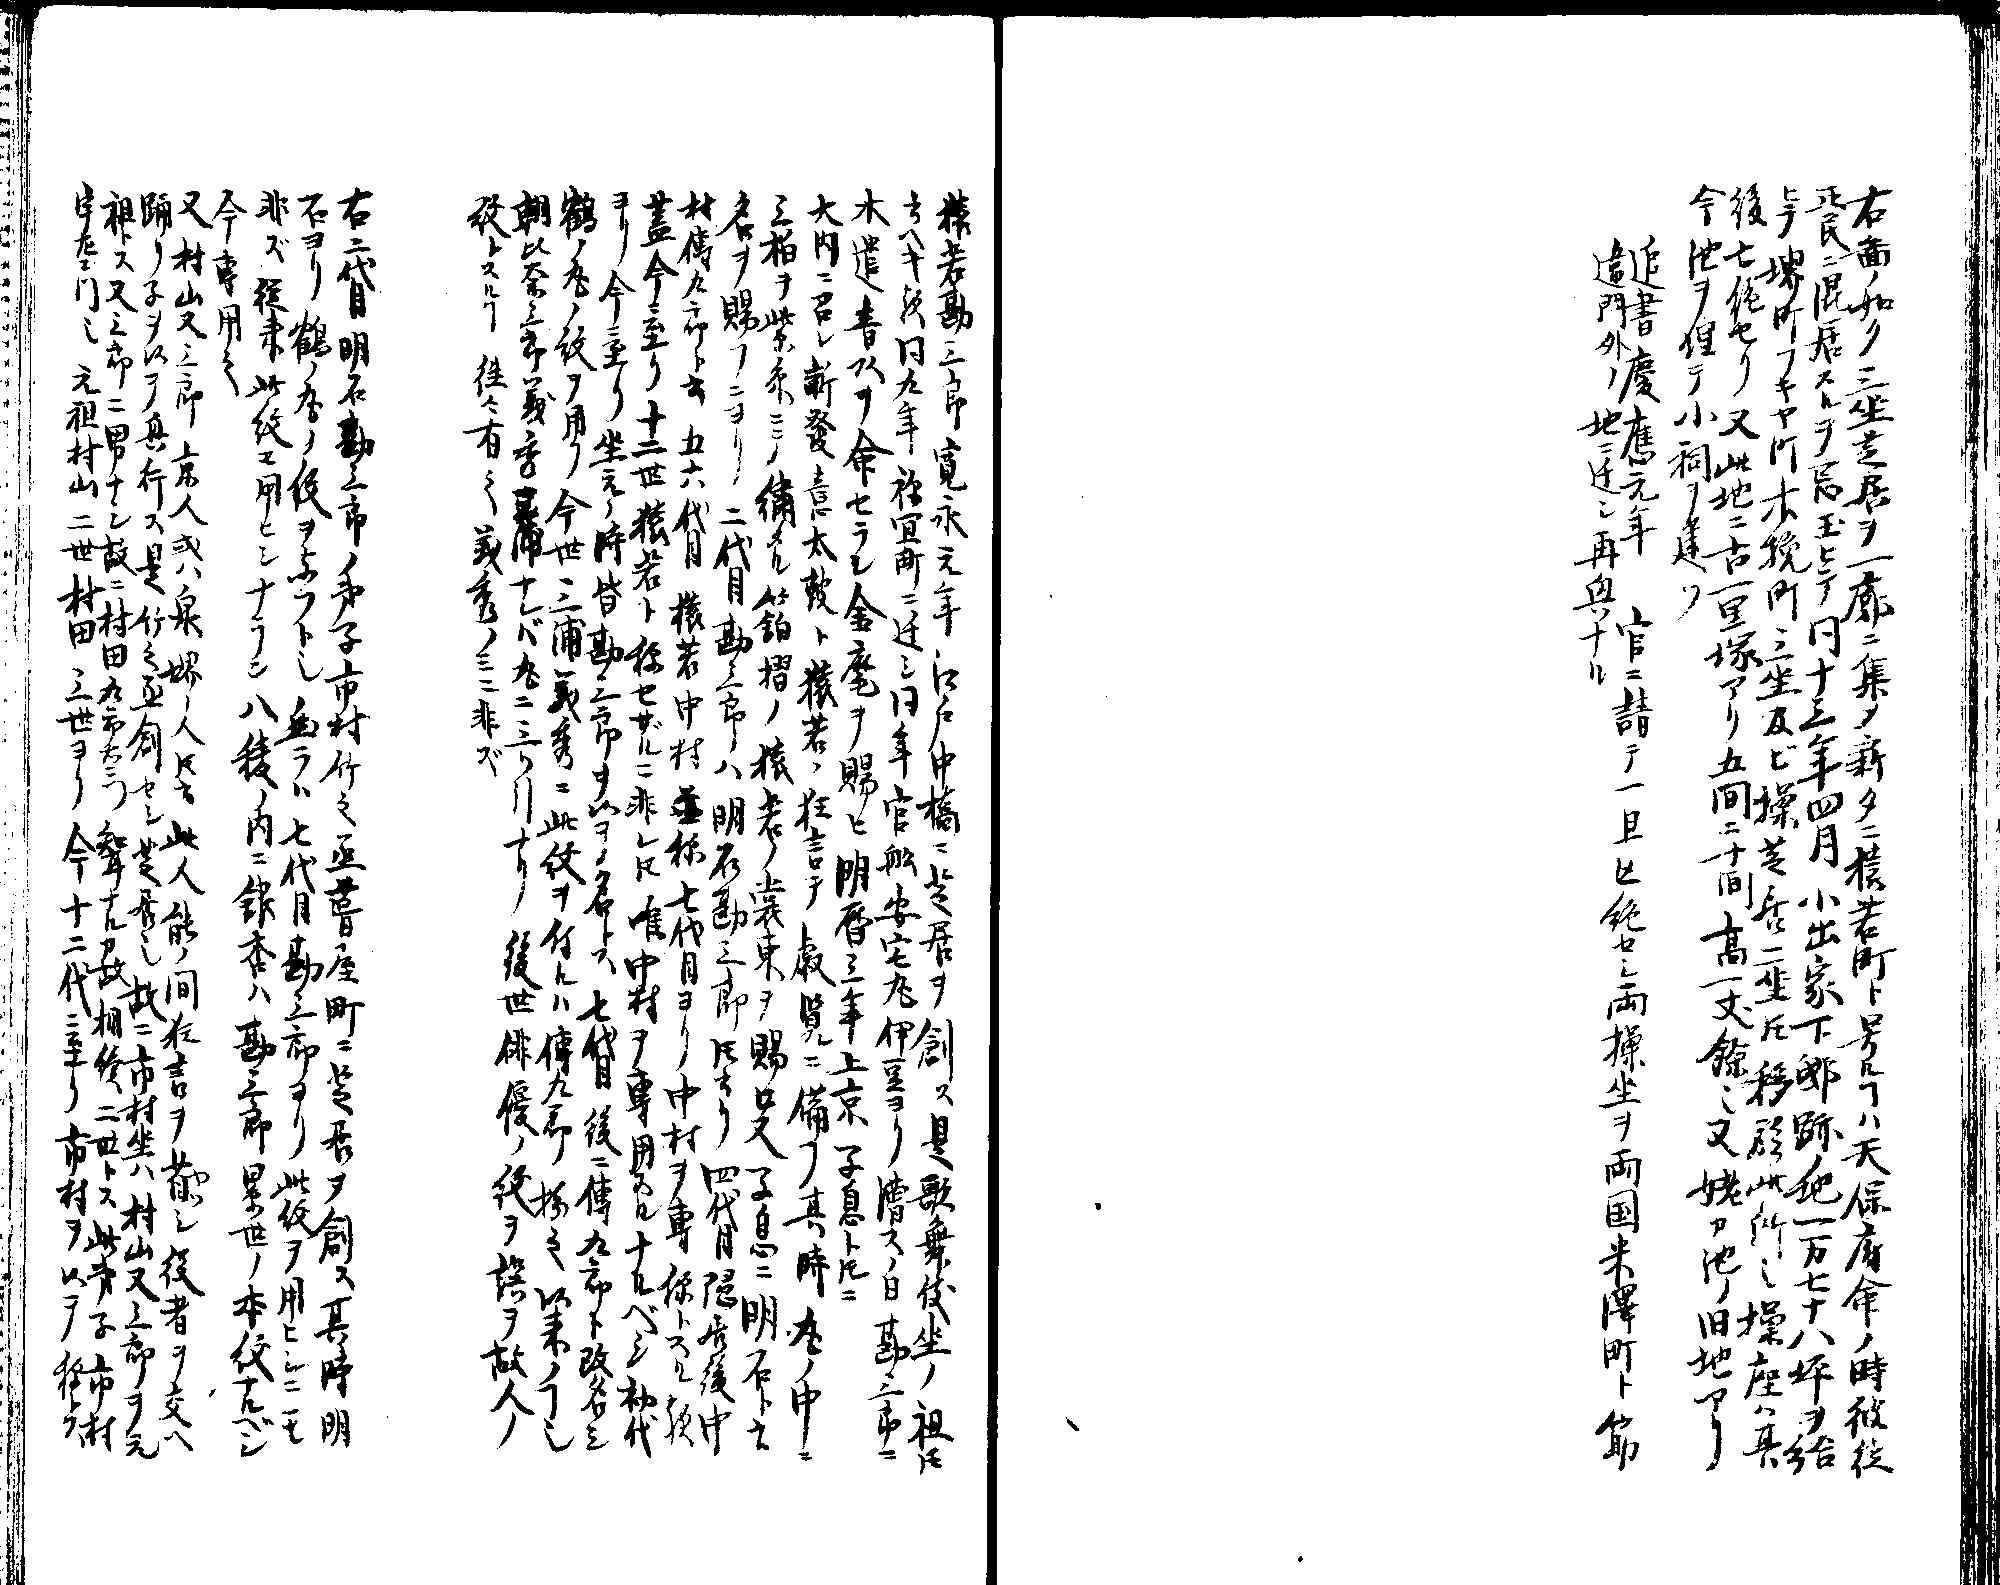 右畵ノ如ク三坐芝居ヲ一廓ニ集タ新タニ猿若町ト号ルヿハ天保府命ノ時彼徒
ノ民ニ混居スルヲ忌玉ヒテ同十三年四月小出家下邸跡ノ地一万七十八坪ヲ給
ヒテ堺町フキヤ町木挽町三坐及ヒ操芝居二坐氏移移此所也操座ハ其
後亡絶セリ又此地ニ古一里塚アリ五間ニ十間高一丈餘也又姥ヵ池ノ旧地アリ
今池ヲ埋テ小祠ヲ建ツ
追書慶應元年　官ニ請テ一旦亡絶セシ両操坐ヲ両国米澤町ト筋
違門外ノ地ニ迁シ再興ナル
猿若勘三郎寛永元年江戸中橋ニ芝居ヲ創ス是歌舞伎坐ノ祖氏
云ベキ欤同九年祢宜町ニ迁シ同年官舩安宅丸伊豆ヨリ漕スノ日勘三郎ニ
木遣音以ヲ命セラレ金麾ヲ賜ヒ明暦三年上京子息ト氏ニ
大内ニ召シ新發意太鼓ト猿若ノ狂言テ叡覧ニ備フ其時丸ノ中ニ
三柏ヲ紫糸ニテ繍タル箔摺ノ猿若ノ裳束ヲ賜ヒ又子息ニ明石ト云
名ヲ賜フニヨリ二代目勘三郎ハ明石勘三郎氏云リ四代目隠居後中
村傳九郎ト云五六代目猿若中村並称七代目ヨリ中村ヲ専称トスル欤
蓋今ニ至リ十二世猿若ト称セザルニ非レ氏唯中村ヲ専用フルナルベシ初代
ヨリ今ニ至リ坐元ノ時皆勘三郎ヲ以ヲノ名トス七代目後ニ傳九郎ト改名シ
鶴ノ丸ノ紋ヲ用フ今世ニ三浦義秀ニ此紋ヲ付ルハ傳九郎扮之以来ノヿ也
朝比奈三郎義秀三浦ナレバ丸ニ三ツ引ナリ後世俳優ノ紋ヲ誤ヲ故人ノ
紋トスルヿ往々有之義秀ノミニ非ズ
右二代目明石勘三郎ノ弟子市村竹之丞葺屋町ニ芝居ヲ創ス其時明
石ヨリ鶴ノ丸ノ紋ヲ与フト也然ラハ七代目勘三郎ヨリ此紋ヲ用ヒシニモ
非ズ従来此紋モ用ヒシナラン八稜ノ内ニ銀杏ハ勘三郎累世ノ本紋ナルベシ
今専用之
又村山又三郎京人或ハ泉堺ノ人氏云此人能ノ間狂言ヲ芸シ役者ヲ交ヘ
踊リ子ヲ以ヲ興行ス是竹之丞創セシ芝居也故ニ市村坐ハ村山又三郎ヲ元
祖トス又三郎ニ男ナシ故ニ村田九郎右エ門聟ナルヵ故相続二世トス此弟子市村
宇左エ門也元祖村山二世村田三世ヨリ今十二代ニ至リ市村ヲ以ヲ称トス